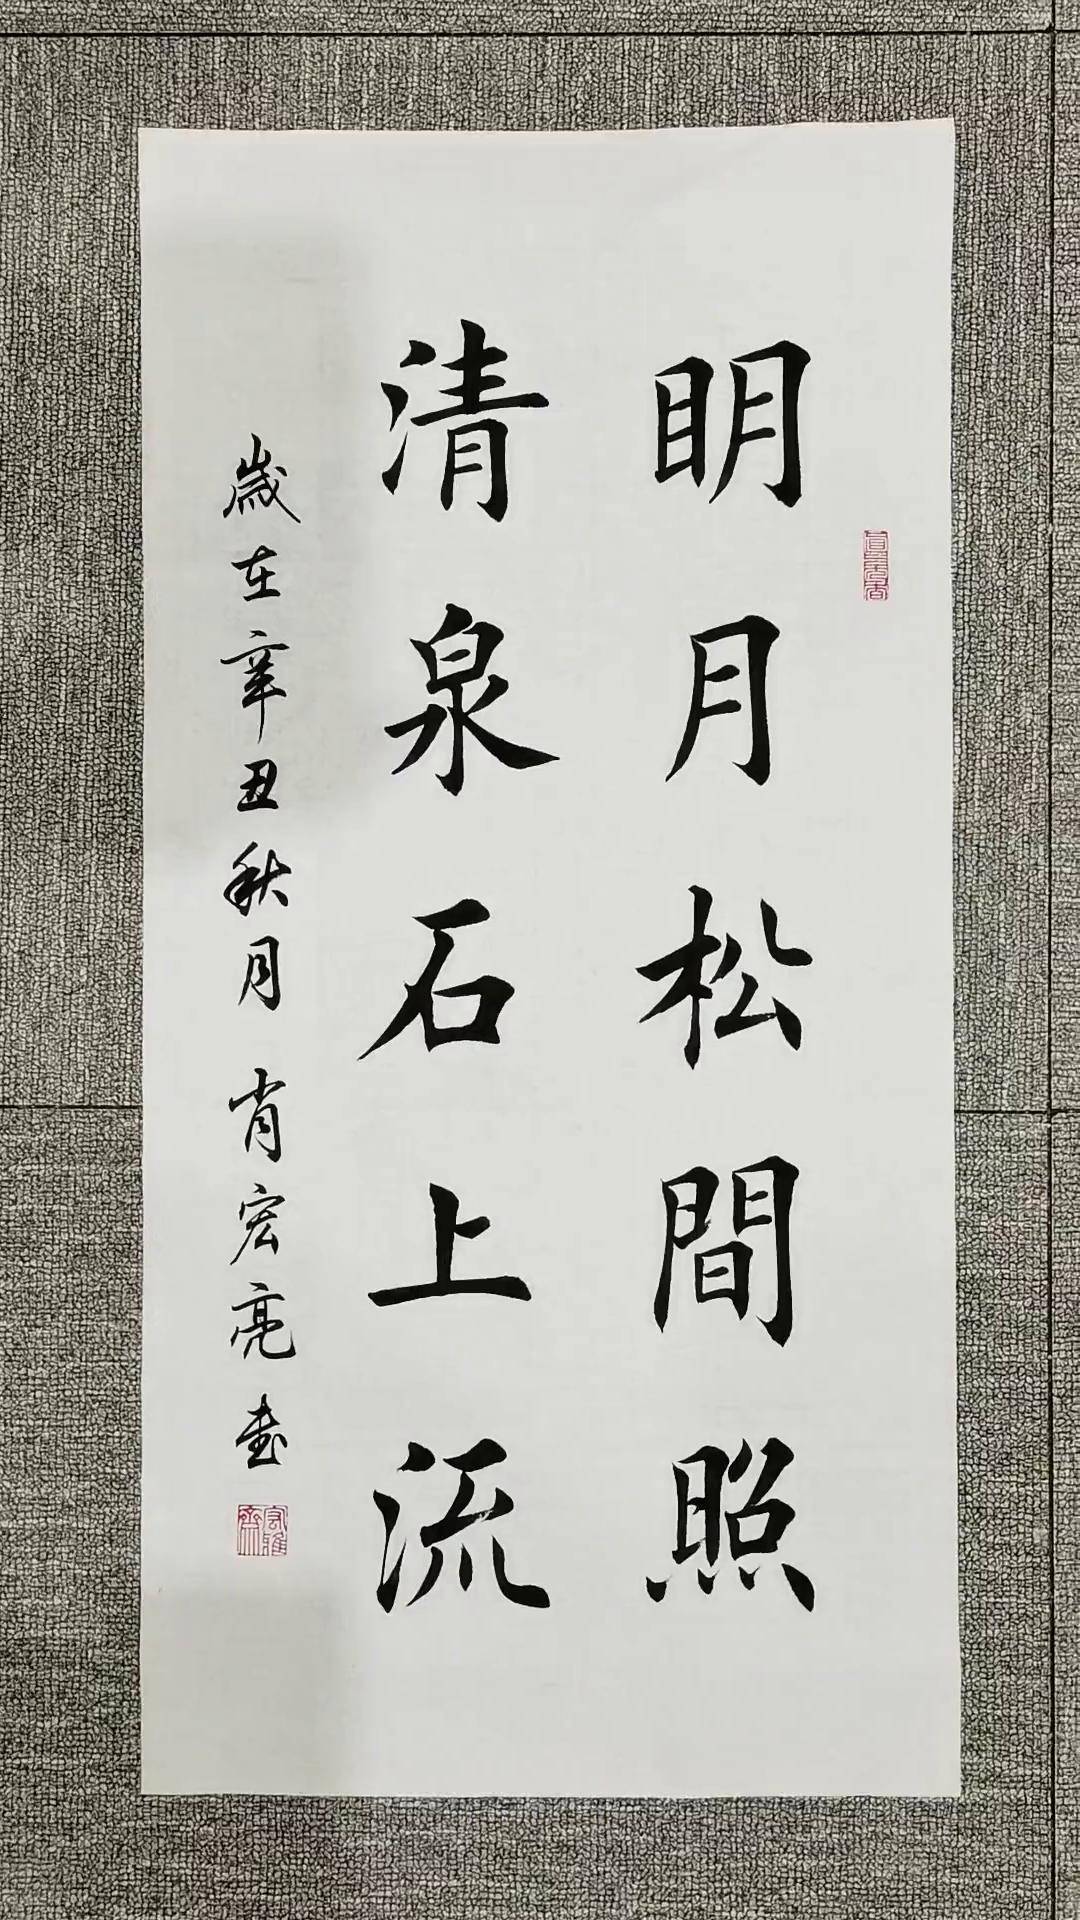 明月松間照
清泉石上流
歲在辛丑秋月 肖宏亮书